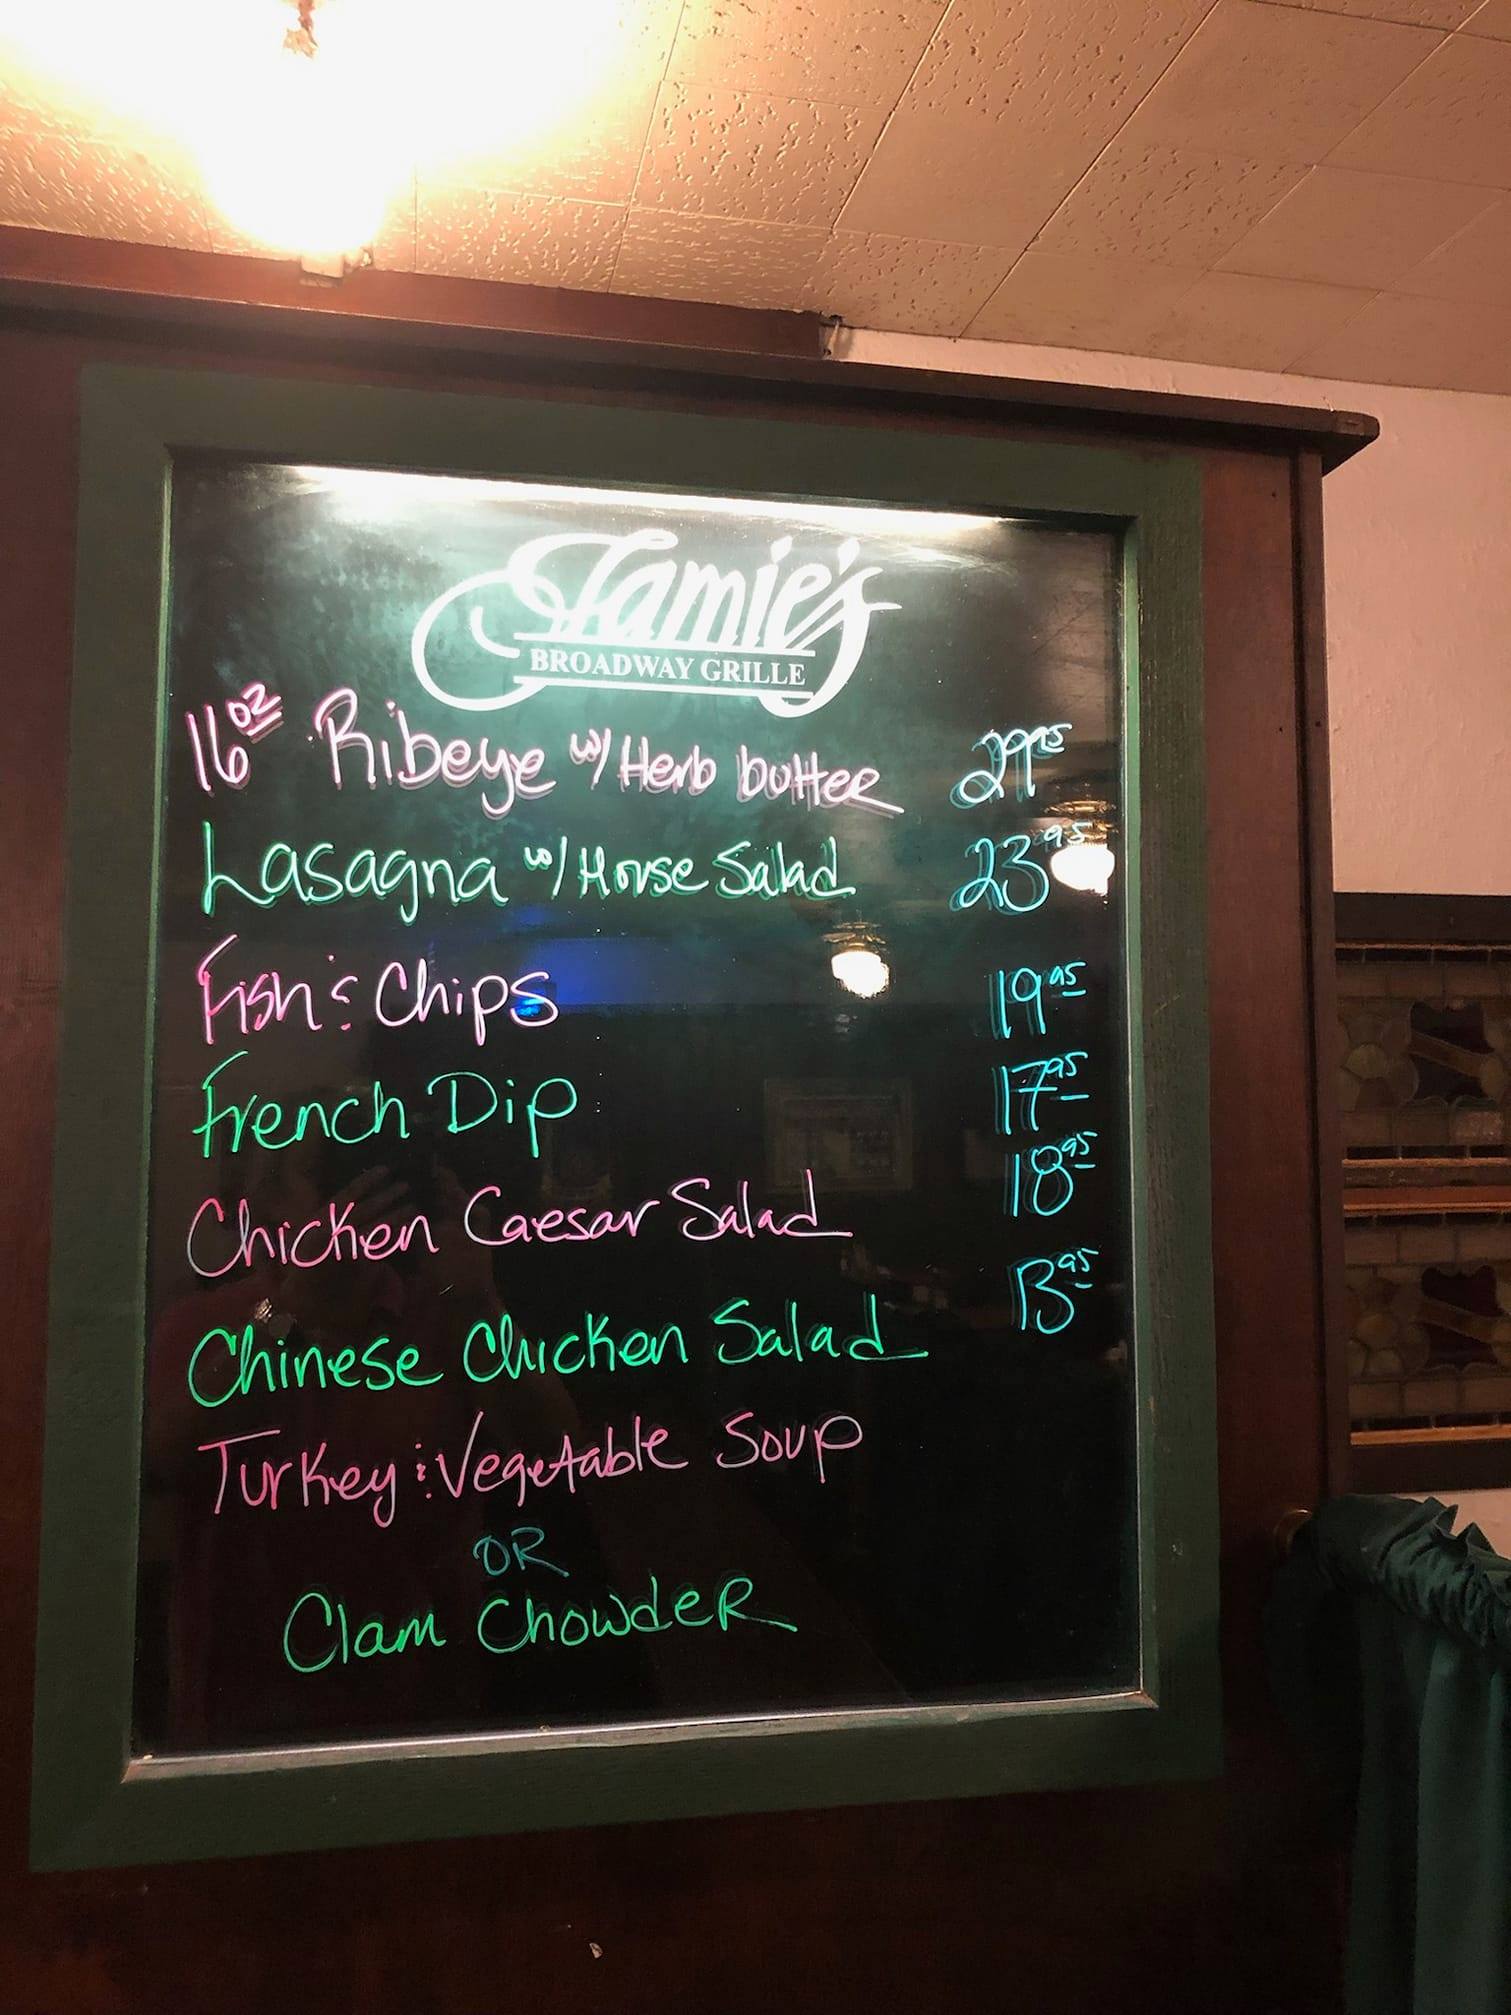 Jamie's
BROADWAY GRILLE
16oz Ribeye w/ Herb butter 29.95
Lasagna w/ House Salad 23.95
Fish & Chips 19.95
French Dip 17.95
Chicken Caesar Salad 18.95
Chinese Chicken Salad 13.95
Turkey & Vegetable Soup
OR
Clam Chowder